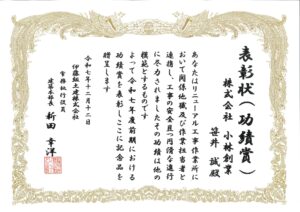 表彰状(功績賞)
株式会社 小林創業
笹井 誠殿
あなたはリニューアル工事作業所に
おいて関係他職及び作業担当者と
連携し、工事の安全且つ円滑な進行
に尽力されましたその功績は他の
模範とするものです
よって令和七年度前期における
功績賞を表彰しここに記念品を
贈呈します
令和七年十二月十二日
伊藤組土建株式会社
常務執行役員
建築本部長 新田 幸洋